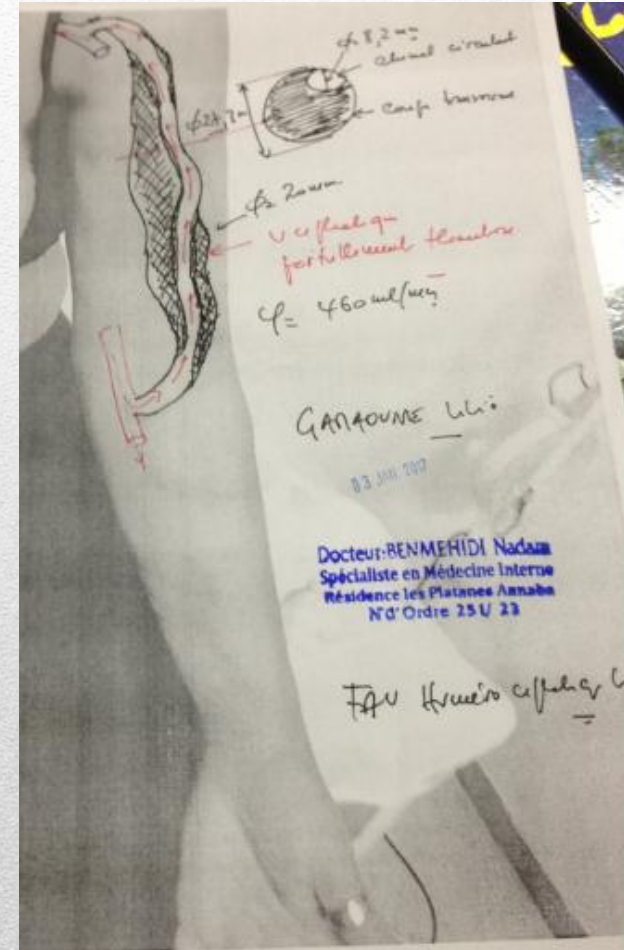 Ø 8,2 mm
chenal circulant
coupe
V céphalique
partiellement thrombosée
φ = 460 ml/mn
GAMAOUNE Lili
03 JAN 2017
Docteur:BENMEHIDI Nadam
Spécialiste en Médecine Interne
Résidence les Platanes Annaba
N'd'Ordre 251/ 23
FAV Huméro céphalique